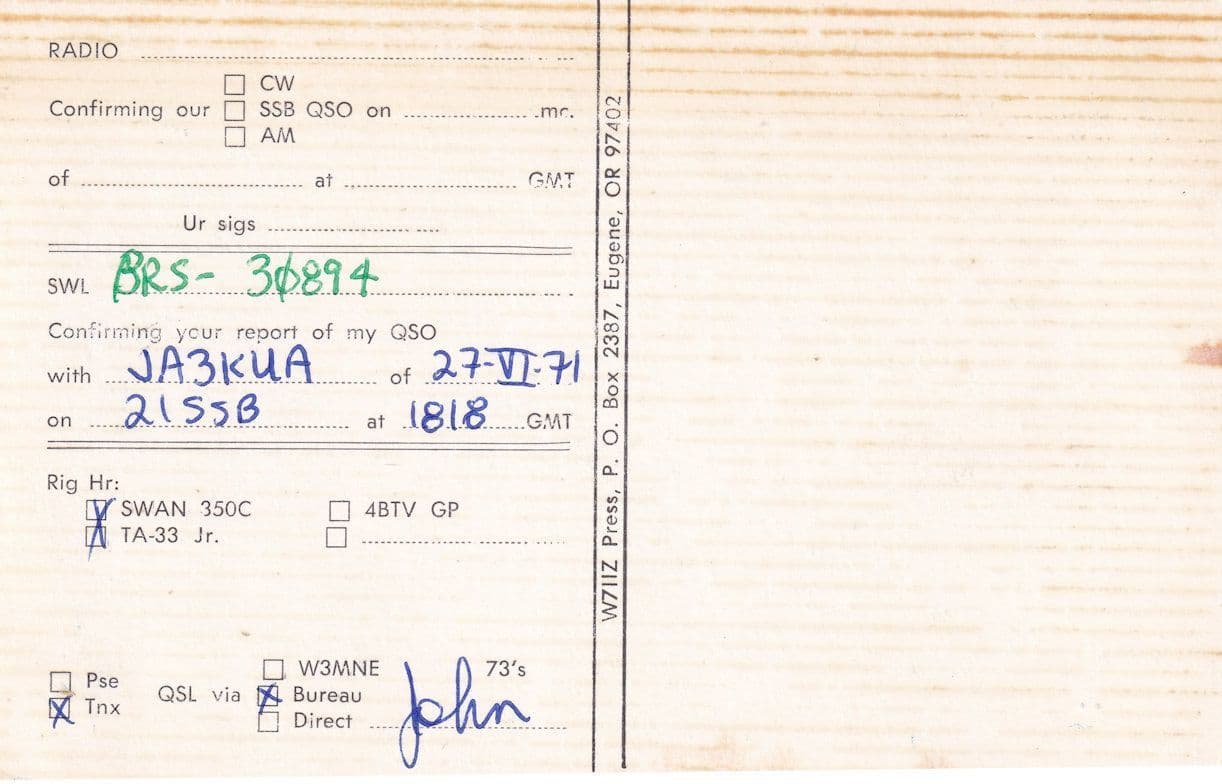 RADIO
CW
Confirming our SSB QSO on mc.
AM
of at GMT
Ur sigs
SWL BRS- 30894
Confirming your report of my QSO
with JA3KUA of 27-VI-71
on 21SSB at 1818 GMT
Rig Hr:
SWAN 350C 4BTV GP
TA-33 Jr.
W3MNE 73's
Pse
QSL via Bureau
Tnx
Direct John
W7IIZ Press, P. O. Box 2387, Eugene, OR 97402